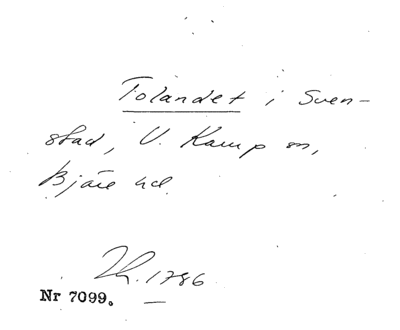 Tolandet i Sven-
stad, V. Karup sn,
Bjäre hd
Lh. 1786
Nr 7099.